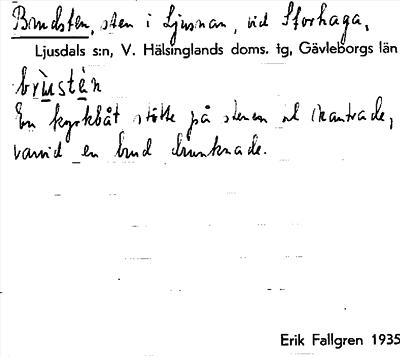 Brudsten, sten i Ljusnan, vid Storhaga,
Ljusdals s:n, V. Hälsinglands doms. tg, Gävleborgs län
brùstèn
En kyrkbåt stötte på stenen o kantrade,
varvid en brud drunknade.
Erik Fallgren 1935